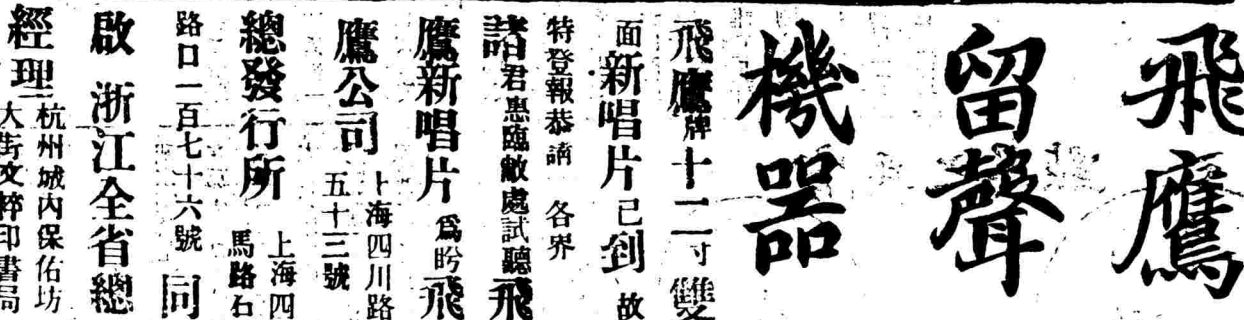 飛鷹
留聲
機器
飛鷹牌十二寸雙
面新唱片已到故
特登報恭請各界
諸君惠臨敝處試聽飛
鷹新唱片為盼飛
鷹公司上海四川路
五十三號
總發行所上海四
馬路石
路口一百七十六號同
啟浙江全省總
經理杭州城內保佑坊
大街文粹印書局